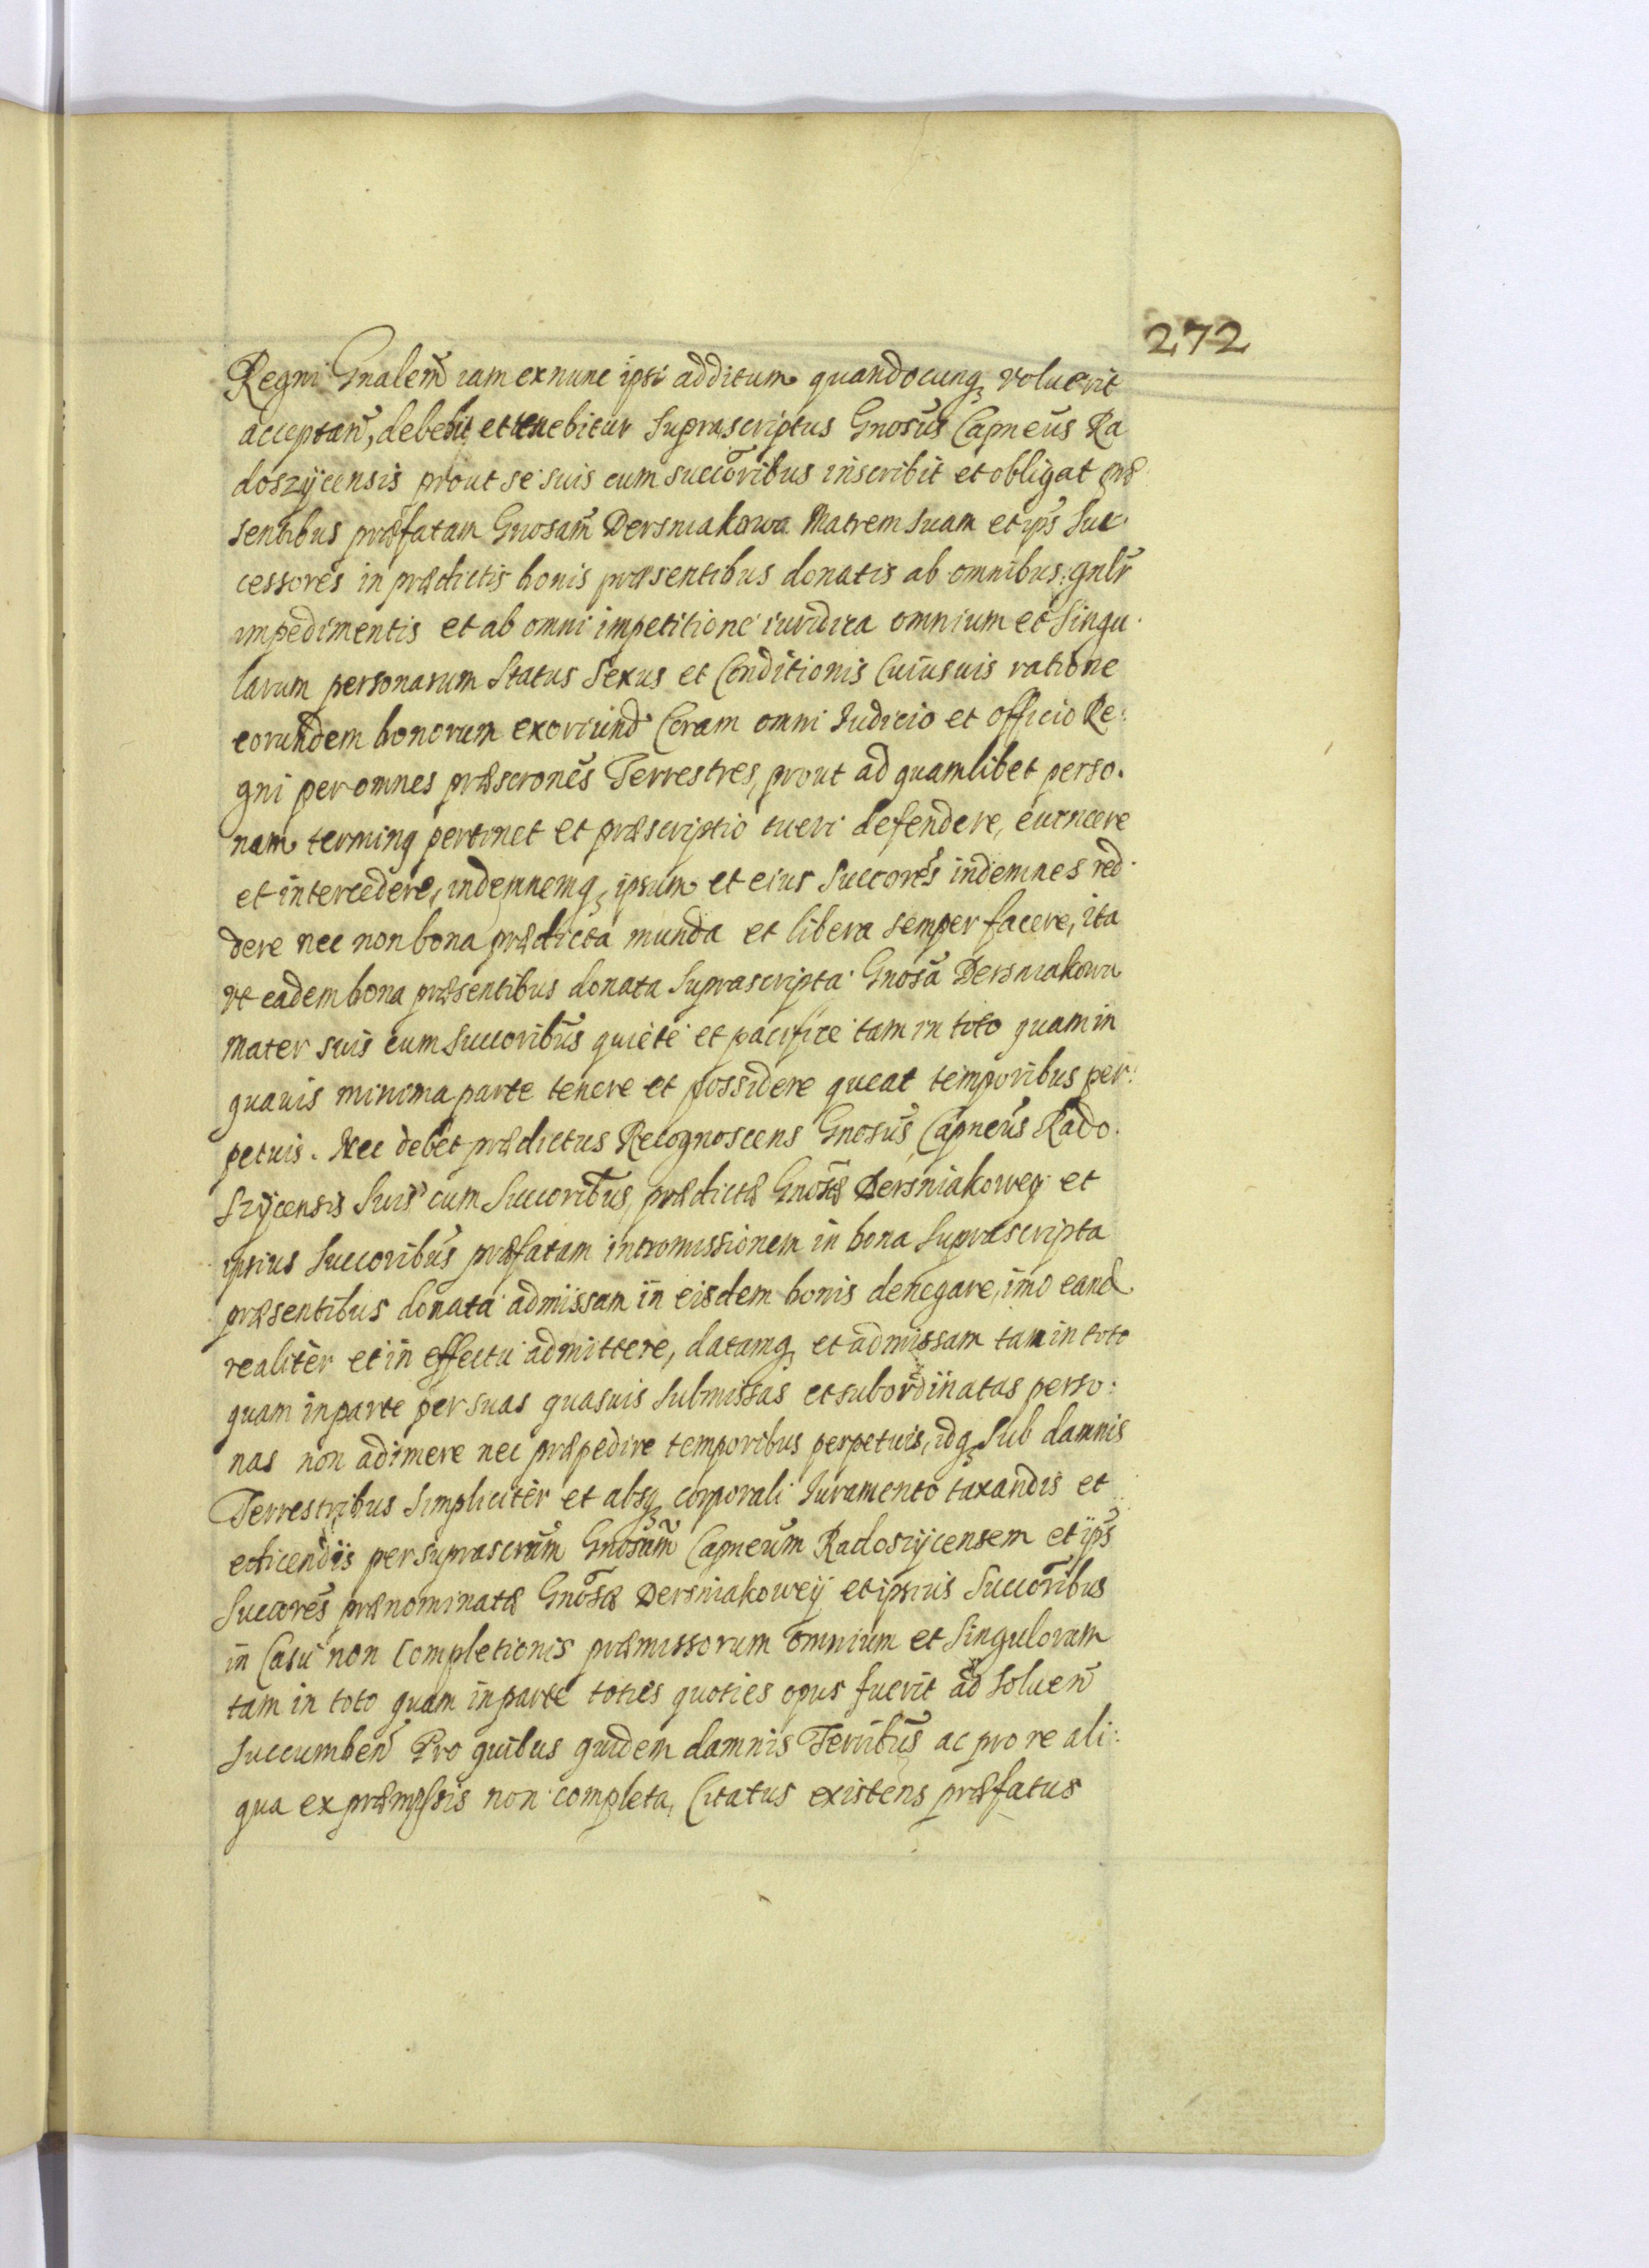 272
Regni Gnalem̃ iam ex nunc ipsi additum quandocunq voluerit
acceptan̄, debebit et tenebitur Suprascriptus Gnosus Capneus Ra
doszÿcensis prout se suis cum succoribus inscribit et obligat præ
sentibus præfatam Gnosam̃ Dersniakowa Matrem suam et ips̄ Suc
cessores in prædictis bonis præsentibus donatis ab omnibus gnlr̄
impedimentis et ab omni impetitione iuridica omnium et Singu
larum personarum Status Sexus et Conditionis Cuiusuis ratione
eorundem bonorum exoriund Coram omni Iudicio et officio Re:
gni per omnes præscrones Terrestres, prout ad quamlibet perso.
nam terminq pertinet et præscriptio tueri defendere, euincere
et intercedere, indemnemq ipsum et eius Succores indemnes red
dere nec non bona prædicta munda et libera semper facere, ita
vt eadem bona præsentibus donata Suprascripta Gnosa Dersniakowa
Mater suis cum Succoribus quiete et pacifice tam in toto quam in
quauis minima parte tenere et possidere queat temporibus per:
petuis. Nec debet prædictus Recognoscens Gnosus Capneus Rado.
szÿcensis Suis cum Succoribus, prædictæ Gnosæ Dersniakowey et
ipsius Succoribus præfatam intromissionem in bona Suprascripta
præsentibus donata admissam in eisdem bonis denegare, imo eand
realiter et in effectu admittere, datamq et admissam tam in toto
quam in parte per suas quasuis submissas et subordinatas perso:
nas non adimere nec præpedire temporibus perpetuis, idq Sub damnis
Terrestribus Simpliciter et absq corporali Iuramento taxandis et
edicendis per suprascrum Gnosum̃ Capneum RadoszÿcenSem et ips̄
Succores prænominatæ Gnosæ Dersniakoweÿ et ipsius Succoribus
in Casu non Completionis præmissorum omnium et Singulorum
tam in toto quam in parte toties quoties opus fuerit ad Soluen̄
Succumben̄ Pro quibus quidem damnis Terribus̄ ac pro re ali:
qua ex præmissis non completa, Citatus existens præfatus